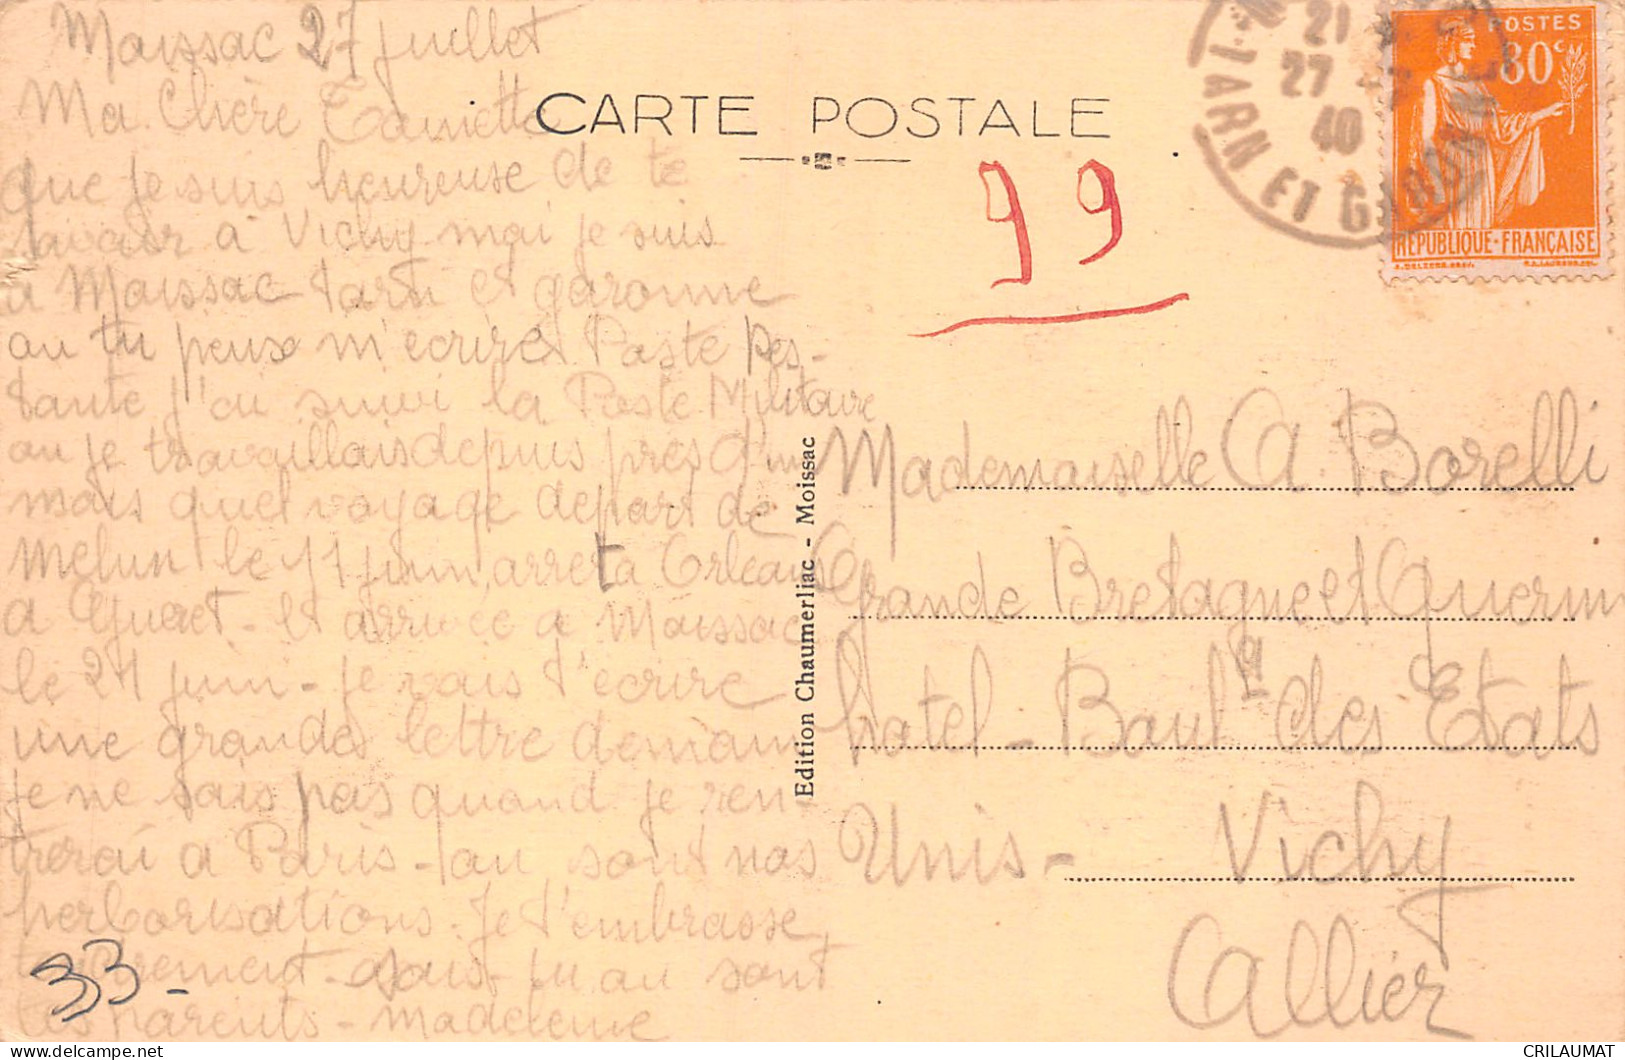 Moissac 27 juillet
Ma Chère Toniette
que je suis heureuse de te
savoir à Vichy moi je suis
à Moissac Tarn et garonne
ou tu peux m'ecrire Poste Res-
tante j'ai suivi la Poste Militaire
ou je travaillais depuis près d'un
mais quel voyage départ de
Melun le 11 juin, arret a Orléans
a Gueret - et arrivée a Moissac
le 24 juin - je vais t'ecrire
une grande lettre demain
je ne sais pas quand je ren-
trerai a Paris - ou sont nos
herborisations. Je t'embrasse
sais tu ou sont
tes parents - Madeleine
33 -
CARTE POSTALE
99
21
27 - 7
40
TARN ET GARONNE
POSTES
80c
REPUBLIQUE · FRANÇAISE
Edition Chaumerliac - Moissac
Mademoiselle A. Borelli
Grande Bretagne et
hotel - des Etats
Unis - Vichy
Allier
CRILAUMAT